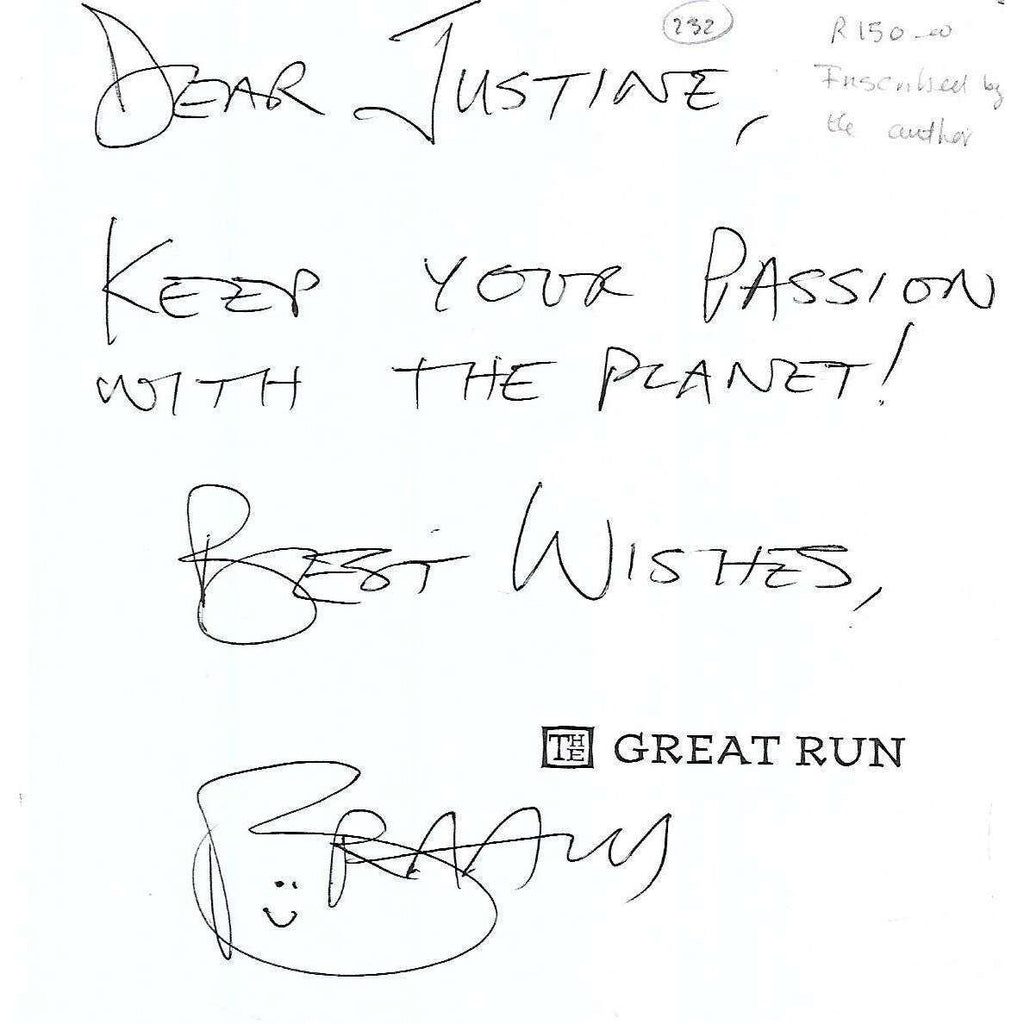 232
R150-00
Inscribed by
the author
DEAR JUSTINE,
KEEP YOUR PASSION
WITH THE PLANET!
BEST WISHES,
THE GREAT RUN
BRAAM